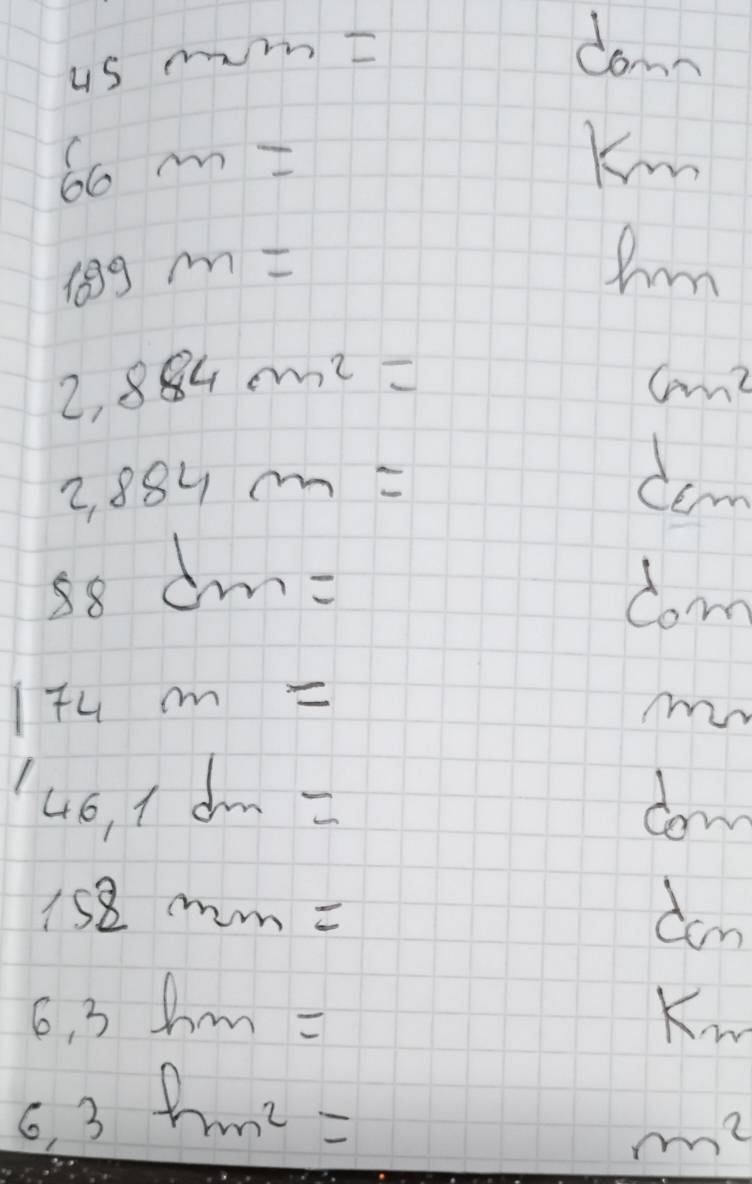 45 mm = dam
66 m = Km
199 m = hm
2,884 m² = cm²
2,884 m = dam
88 dm = dam
174 m = mm
146,1 dm = dam
158 mm = dam
6,3 hm = Km
6,3 hm² = m²